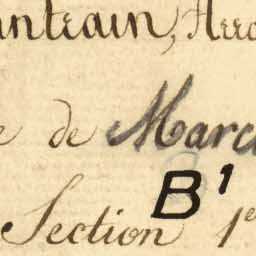 untrain, Arro
e de Marc
B¹
Section 1e